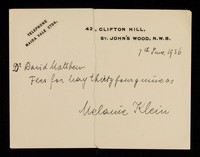 TELEPHONE
MAIDA VALE 2780.
42, CLIFTON HILL,
ST. JOHN'S WOOD, N.W.8.
7th June 1936
Dr David Matthew
Fees for May thirty four guineas
Melanie Klein